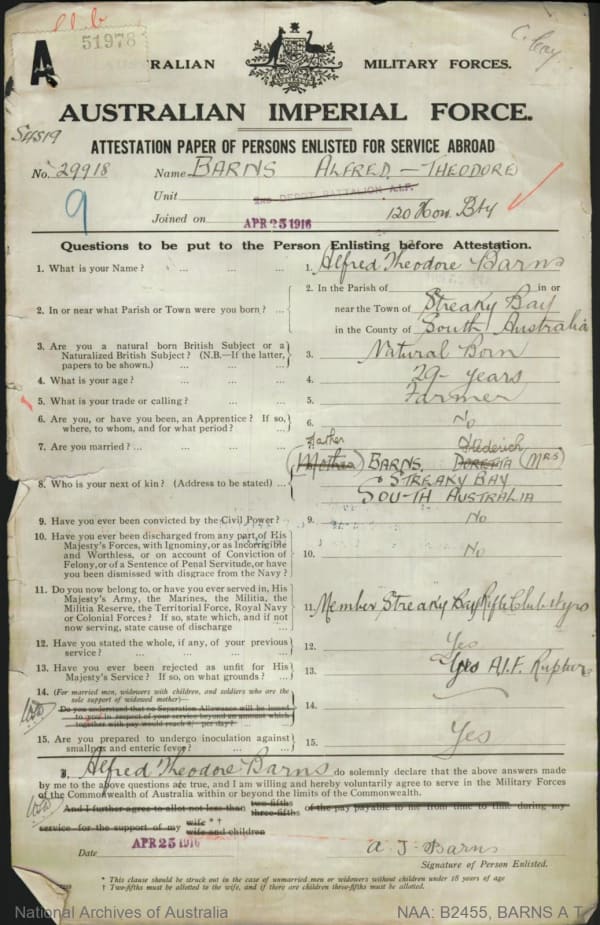 51978
A
AUSTRALIAN MILITARY FORCES.
AUSTRALIAN IMPERIAL FORCE.
ATTESTATION PAPER OF PERSONS ENLISTED FOR SERVICE ABROAD
No. 29918 Name BARNS ALFRED - THEODORE
Unit 2ND DEPOT BATTALION A.I.F. 120 How. Bty
9
Joined on APR 25 1916
Questions to be put to the Person Enlisting before Attestation.
1. What is your Name? ... ... ... 1. Alfred Theodore Barns
2. In or near what Parish or Town were you born? ... 2. In the Parish of in or
near the Town of Streaky Bay
in the County of South Australia
3. Are you a natural born British Subject or a
Naturalized British Subject? (N.B.—If the latter,
papers to be shown.) ... ... 3. Natural Born
4. What is your age? ... ... ... 4. 29 - years
5. What is your trade or calling? ... ... 5. Farmer
6. Are you, or have you been, an Apprentice? If so,
where, to whom, and for what period? ... 6. No
7. Are you married? ... ... ...
8. Who is your next of kin? (Address to be stated) ... Father
(Mother) BARNS. DORETHA (MRS)
STREAKY BAY
SOUTH AUSTRALIA
9. Have you ever been convicted by the Civil Power? ... 9. No
10. Have you ever been discharged from any part of His
Majesty's Forces, with Ignominy, or as Incorrigible
and Worthless, or on account of Conviction of
Felony, or of a Sentence of Penal Servitude, or have
you been dismissed with disgrace from the Navy? 10. No
11. Do you now belong to, or have you ever served in, His
Majesty's Army, the Marines, the Militia, the
Militia Reserve, the Territorial Force, Royal Navy
or Colonial Forces? If so, state which, and if not
now serving, state cause of discharge ... 11. Member Streaky Bay Rifle Club yrs
12. Have you stated the whole, if any, of your previous
service? ... ... ... 12. Yes
13. Have you ever been rejected as unfit for His
Majesty's Service? If so, on what grounds? ... 13. Yes A.I.F. Rupture
14. (For married men, widowers with children, and soldiers who are the
sole support of widowed mother)—
Do you understand that no Separation Allowance will be issued
to you in respect of your service beyond an amount which
together with pay would reach 8/- per day? ... 14.
15. Are you prepared to undergo inoculation against
smallpox and enteric fever? ... ... 15. Yes
I, Alfred Theodore Barns do solemnly declare that the above answers made
by me to the above questions are true, and I am willing and hereby voluntarily agree to serve in the Military Forces
of the Commonwealth of Australia within or beyond the limits of the Commonwealth.
And I further agree to allot not less than two-fifths three-fifths of the pay payable to me from time to time during my
service for the support of my wife *† wife and children
Date APR 25 1916 A T Barns
Signature of Person Enlisted.
* This clause should be struck out in the case of unmarried men or widowers without children under 18 years of age
† Two-fifths must be allotted to the wife, and if there are children three-fifths must be allotted.
National Archives of Australia NAA: B2455, BARNS A T